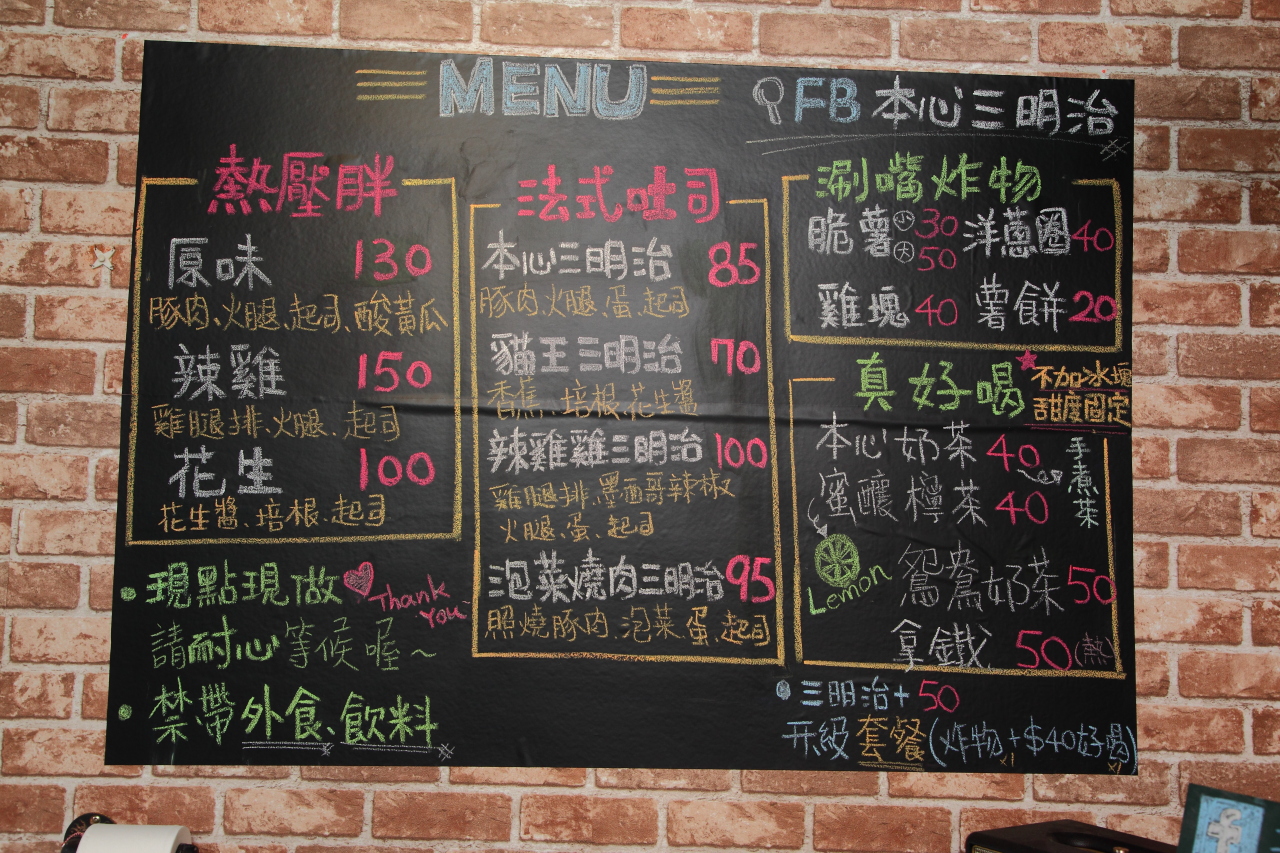 MENU
FB 本心三明治
熱壓胖
原味 130
豚肉、火腿、起司、酸黃瓜
辣雞 150
雞腿排、火腿、起司
花生 100
花生醬、培根、起司
現點現做 Thank You
請耐心等候喔~
禁帶外食、飲料
法式吐司
本心三明治 85
豚肉、火腿、蛋、起司
貓王三明治 70
香蕉、培根、花生醬
辣雞雞三明治 100
雞腿排、墨西哥辣椒
火腿、蛋、起司
泡菜燒肉三明治 95
照燒豚肉、泡菜、蛋、起司
涮嘴炸物
脆薯 小 30 大 50 洋蔥圈 40
雞塊 40 薯餅 20
真好喝 不加冰塊 甜度固定
本心奶茶 40 手煮茶
蜜釀檸茶 40
Lemon
鴛鴦奶茶 50
拿鐵 50 (熱)
三明治+50
升級套餐(炸物x1+$40好喝x1)